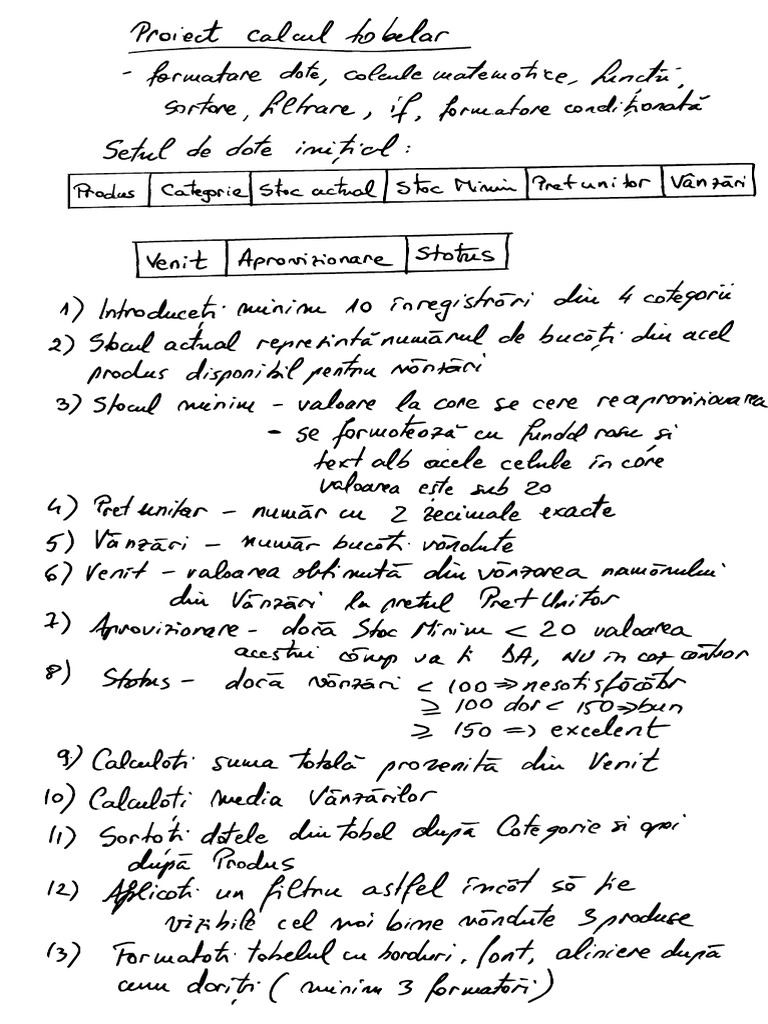 Proiect calcul tabelar
- formatare date, calcule matematice, funcții,
sortare, filtrare, if, formatare condiționată
Setul de date inițial:
Produs Categorie Stoc actual Stoc Minim Pret unitar Vânzări
Venit Aprovizionare Status
1) Introduceți minim 10 înregistrări din 4 categorii
2) Stocul actual reprezintă numărul de bucăți din acel
produs disponibil pentru vânzări
3) Stocul minim - valoare la care se cere reaprovizionarea
- se formatează cu fundal rosu si
text alb acele celule în care
valoarea este sub 20
4) Pret unitar - număr cu 2 zecimale exacte
5) Vânzări - număr bucati vândute
6) Venit - valoarea obtinută din vânzarea numărului
din Vânzări la pretul Pret Unitar
7) Aprovizionare - dacă Stoc Minim < 20 valoarea
acestui câmp va fi DA, NU în caz contrar
8) Status - dacă vânzări < 100 => nesatisfăcător
≥ 100 dar < 150 => bun
≥ 150 => excelent
9) Calculati suma totală provenită din Venit
10) Calculați media Vânzărilor
11) Sortati datele din tabel după Categorie si apoi
după Produs
12) Aplicati un filtru astfel încât să fie
vizibile cel mai bine vândute 3 produse
13) Formatati tabelul cu borduri, font, aliniere după
cum doriți (minim 3 formatări)